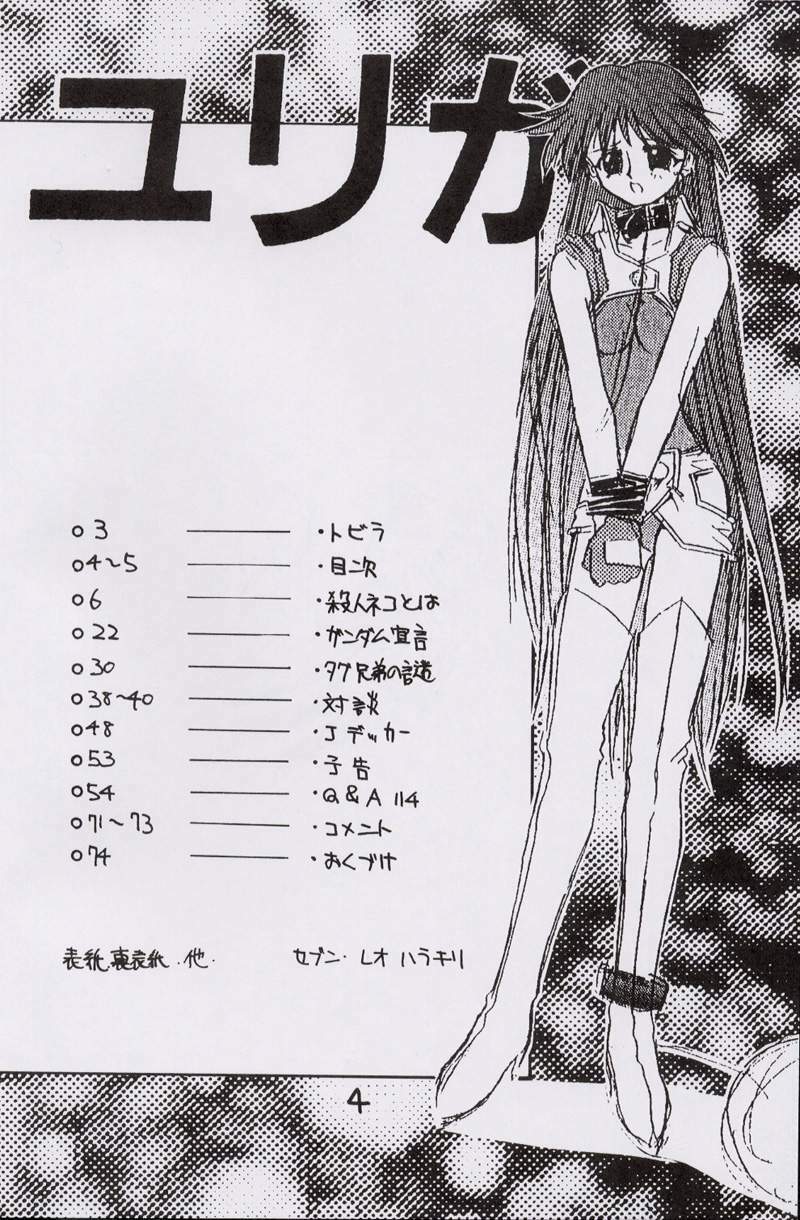 ユリガ
03 ・トビラ
04～05 ・目次
06 ・殺人ネコとは
022 ・ガンダム宣言
030 ・タグ兄弟の謎
038～40 ・対談
048 ・Jデッカー
053 ・予告
054 ・Q&A 114
071～73 ・コメント
074 ・おくづけ
表紙.裏表紙.他. セブン・レオ ハラキリ
4